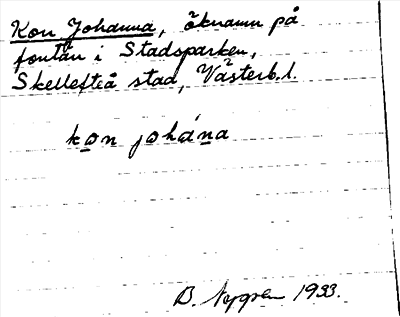 Kon Johanna, öknamn på
fontän i Stadsparken,
Skellefteå stad, Västerb.l.
kon johána
B. Nygren 1933.